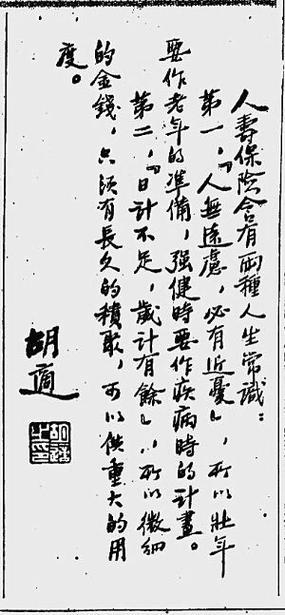 人壽保險含有兩種人生常識：
第一，『人無遠慮，必有近憂』，所以壯年
要作老年的準備，强健時要作疾病時的計畫。
第二，『日計不足，歲計有餘』，所以微細
的金錢，只須有長久的積聚，可以供重大的用
度。
胡適
胡適之印